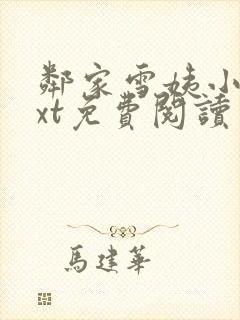 鄰家雪姨小
xt免費閱讀
馬建華